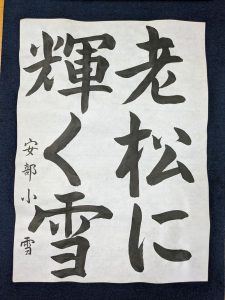 老松に
輝く雪
安部小雪